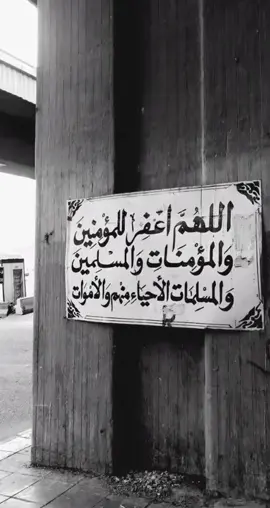 اللهُمَّ اغْفِرْ للمُؤمِنينَ
وَالمُؤمِنَاتِ وَالمُسْلمينَ
وَالمُسلِمَات الأحيَاءِ مِنْهم وَالأموَات